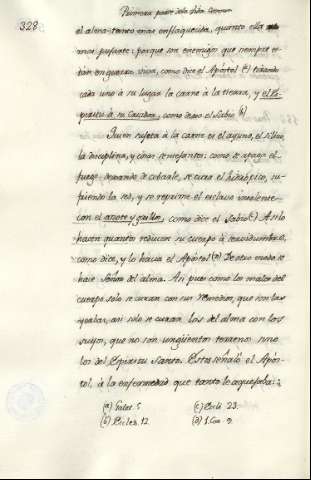 328
Primera parte de la Vida
el alma tanto mas enflaquecida, quanto ella
mas pujante; porque son enemigos que siempre es-
tan en guerra viva, como dice el Apóstol (a) tirando
cada uno à su lugar la carne à la tierra, y el Es-
piritu à su Criador, como dixo el Sabio (b)
Quien sujeta à la carne es el ayuno, el silicio,
la disciplina, y cosas semejantes: como se apaga el
fuego dexando de cebarle, se cura el hidropico, su-
friendo la sed, y se reprime el esclavo insolente
con el azote y grillos, como dice el Sabio (c) Asi lo
hacen quantos reducen su cuerpo à servidumbre,
como dice, y lo hacia el Apóstol (d) De este modo se
hace Señor del alma. Asi pues como los males del
cuerpo solo se curan con sus remedios, que son las
yerbas, asi solo se curan los del alma con los
suyos, que no son unguentos terrenos sino
los del Espiritu Santo. Este señaló el Após-
tol, à la enfermedad que tanto le aquejaba:
(a) Galat. 5 (c) Ecli 23.
(b) Eccles. 12 (d) 1. Cor. 9